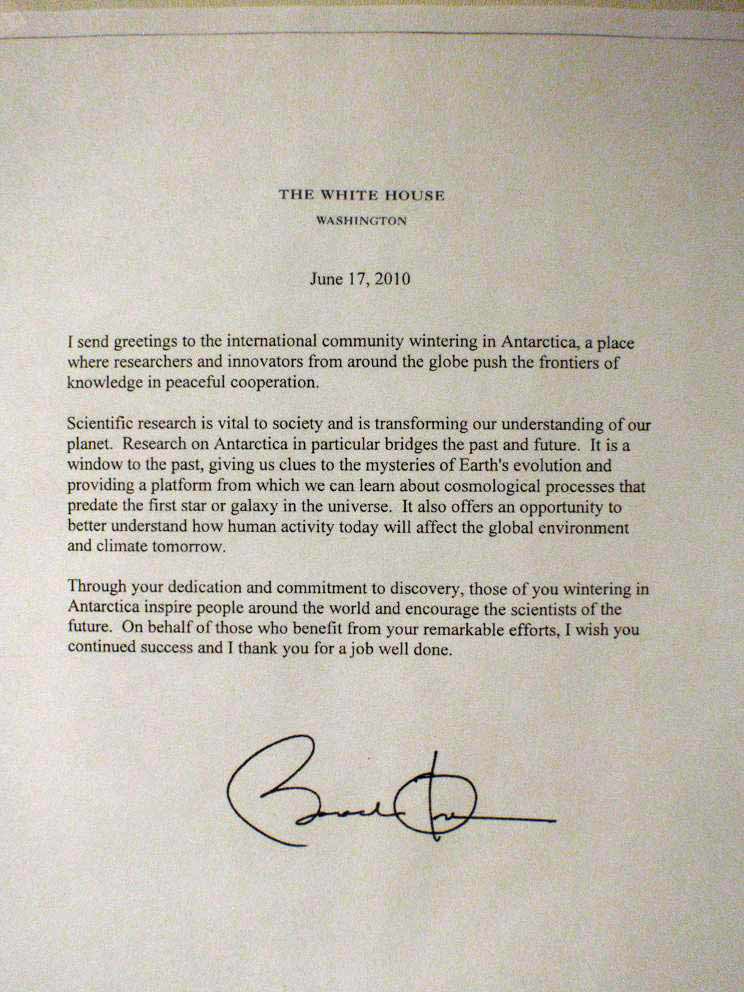 THE WHITE HOUSE
WASHINGTON
June 17, 2010
I send greetings to the international community wintering in Antarctica, a place
where researchers and innovators from around the globe push the frontiers of
knowledge in peaceful cooperation.
Scientific research is vital to society and is transforming our understanding of our
planet. Research on Antarctica in particular bridges the past and future. It is a
window to the past, giving us clues to the mysteries of Earth's evolution and
providing a platform from which we can learn about cosmological processes that
predate the first star or galaxy in the universe. It also offers an opportunity to
better understand how human activity today will affect the global environment
and climate tomorrow.
Through your dedication and commitment to discovery, those of you wintering in
Antarctica inspire people around the world and encourage the scientists of the
future. On behalf of those who benefit from your remarkable efforts, I wish you
continued success and I thank you for a job well done.